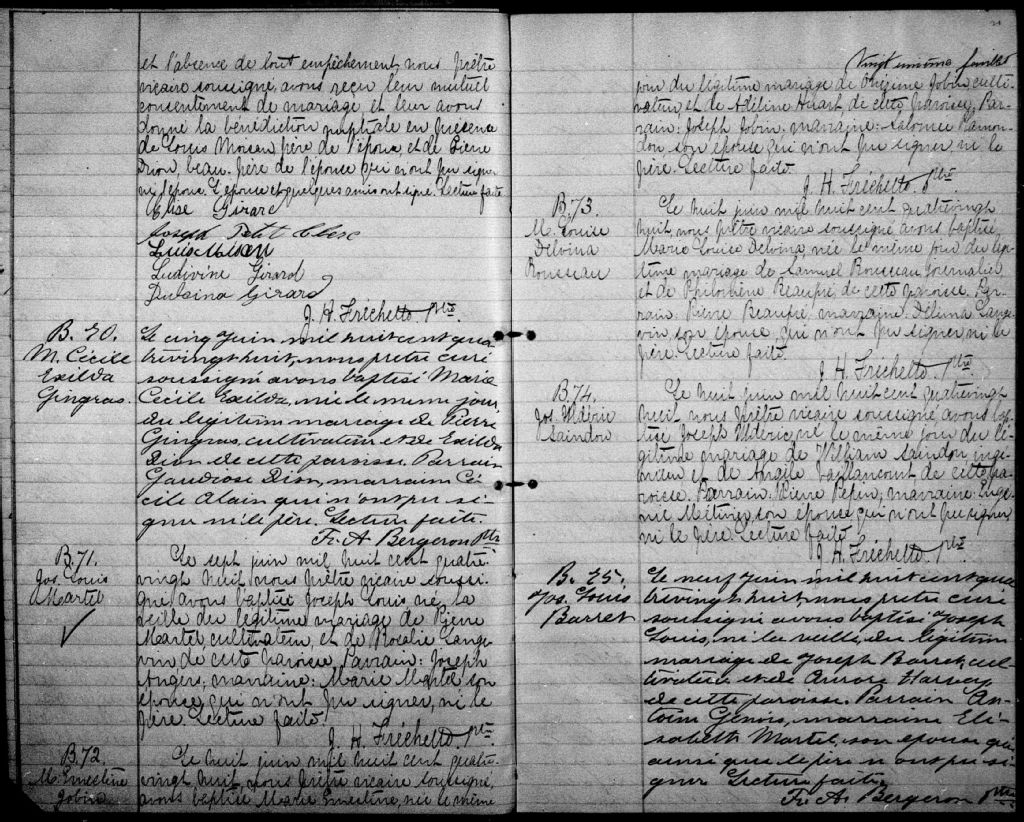 et l'absence de tout empêchement, nous prêtre
vicaire soussigné, avons reçu leur mutuel
consentement de mariage et leur avons
donné la bénédiction nuptiale en présence
de Louis Moreau père de l'époux, et de Pierre
Dion, beau-père de l'épouse qui n'ont pu signer
ni l'époux. L'épouse et quelques amis ont signé. Lecture faite
Elise Girard
Joseph Petit Clerc
Ludivine Girard
Dulsina Girard
J. H. Fréchette Ptre
B. 70.
M. Cécile
Exilda
Gingras.
Le cinq juin, mil huit cent qua
trevingt huit, nous pretre curé
soussigné avons baptisé Marie
Cécile Exilda, née le meme jour
du légitime mariage de Pierre
Gingras, cultivateur et de Exilda
Dion de cette paroisse. Parrain
Gaudiose Dion, marraine Cé
cile Alain qui n'ont pu si-
gner ni le père. Lecture faite.
Fr. A Bergeron Ptre
B. 71.
Jos. Louis
Martel
Le sept juin mil huit cent quatre
vingt huit, nous prêtre vicaire soussi
gné, avons baptisé Joseph Louis né la
veille du légitime mariage de Pierre
Martel, cultivateur, et de Rosalie Lange-
vin de cette paroisse, Parrain: Joseph
Angers, marraine: Marie Martel son
épouse, qui n'ont pu signer, ni le
père. Lecture faite.
J. H. Fréchette Ptre
B. 72.
M. Ernestine
Jobin
Le huit juin mil huit cent quatre
vingt huit, nous prêtre vicaire soussigné,
avons baptisé Marie Ernestine, née le même
Vingt unième feuillet
jour du légitime mariage de Onézime Jobin, culti-
vateur, et de Adéline Huart de cette paroisse, Par-
rain: Joseph Jobin. marraine: Salomée Ramon-
don, son épouse qui n'ont pu signer, ni le
père. Lecture faite.
J. H. Fréchette Ptre.
B. 73.
M. Louise
Delvina
Rousseau
Le huit juin mil huit cent quatrevingt
huit, nous prêtre vicaire soussigné avons baptisé,
Marie Louise Delvina, née le même jour du légi-
time mariage de Samuel Rousseau journalier,
et de Philomène Beaupré, de cette paroisse. Par-
rain: Pierre Beaupré, marraine: Délima Lange-
vin, son épouse, qui n'ont pu signer, ni le
père. Lecture faite.
J. H. Fréchette Ptre
B. 74.
Jos. Uldéric
Saindon
Le huit juin mil huit cent quatrevingt
huit, nous prêtre vicaire soussigné avons bap-
tisé Joseph Uldéric, né le même jour du lé-
gitime mariage de William Saindon ingé-
nieur et de Angèle Vaillancourt de cette pa-
roisse. Parrain: Pierre Pepin, marraine: Eugé-
nie Métivier, son épouse, qui n'ont pu signer
ni le père. Lecture faite.
J. H. Fréchette Ptre
B. 75.
Jos. Louis
Barret
Le neuf juin mil huit cent qua
trevingt huit, nous pretre curé
soussigné avons baptisé Joseph
Louis, né la veille, du légitime
mariage de Joseph Barret, cul-
tivateur et de Aurore Harvey,
de cette paroisse. Parrain An-
toine Genois, marraine Eli-
sabeth Martel, son épouse qui
ainsi que le père n'ont pu si-
gner. Lecture faite
Fr. A. Bergeron Ptre